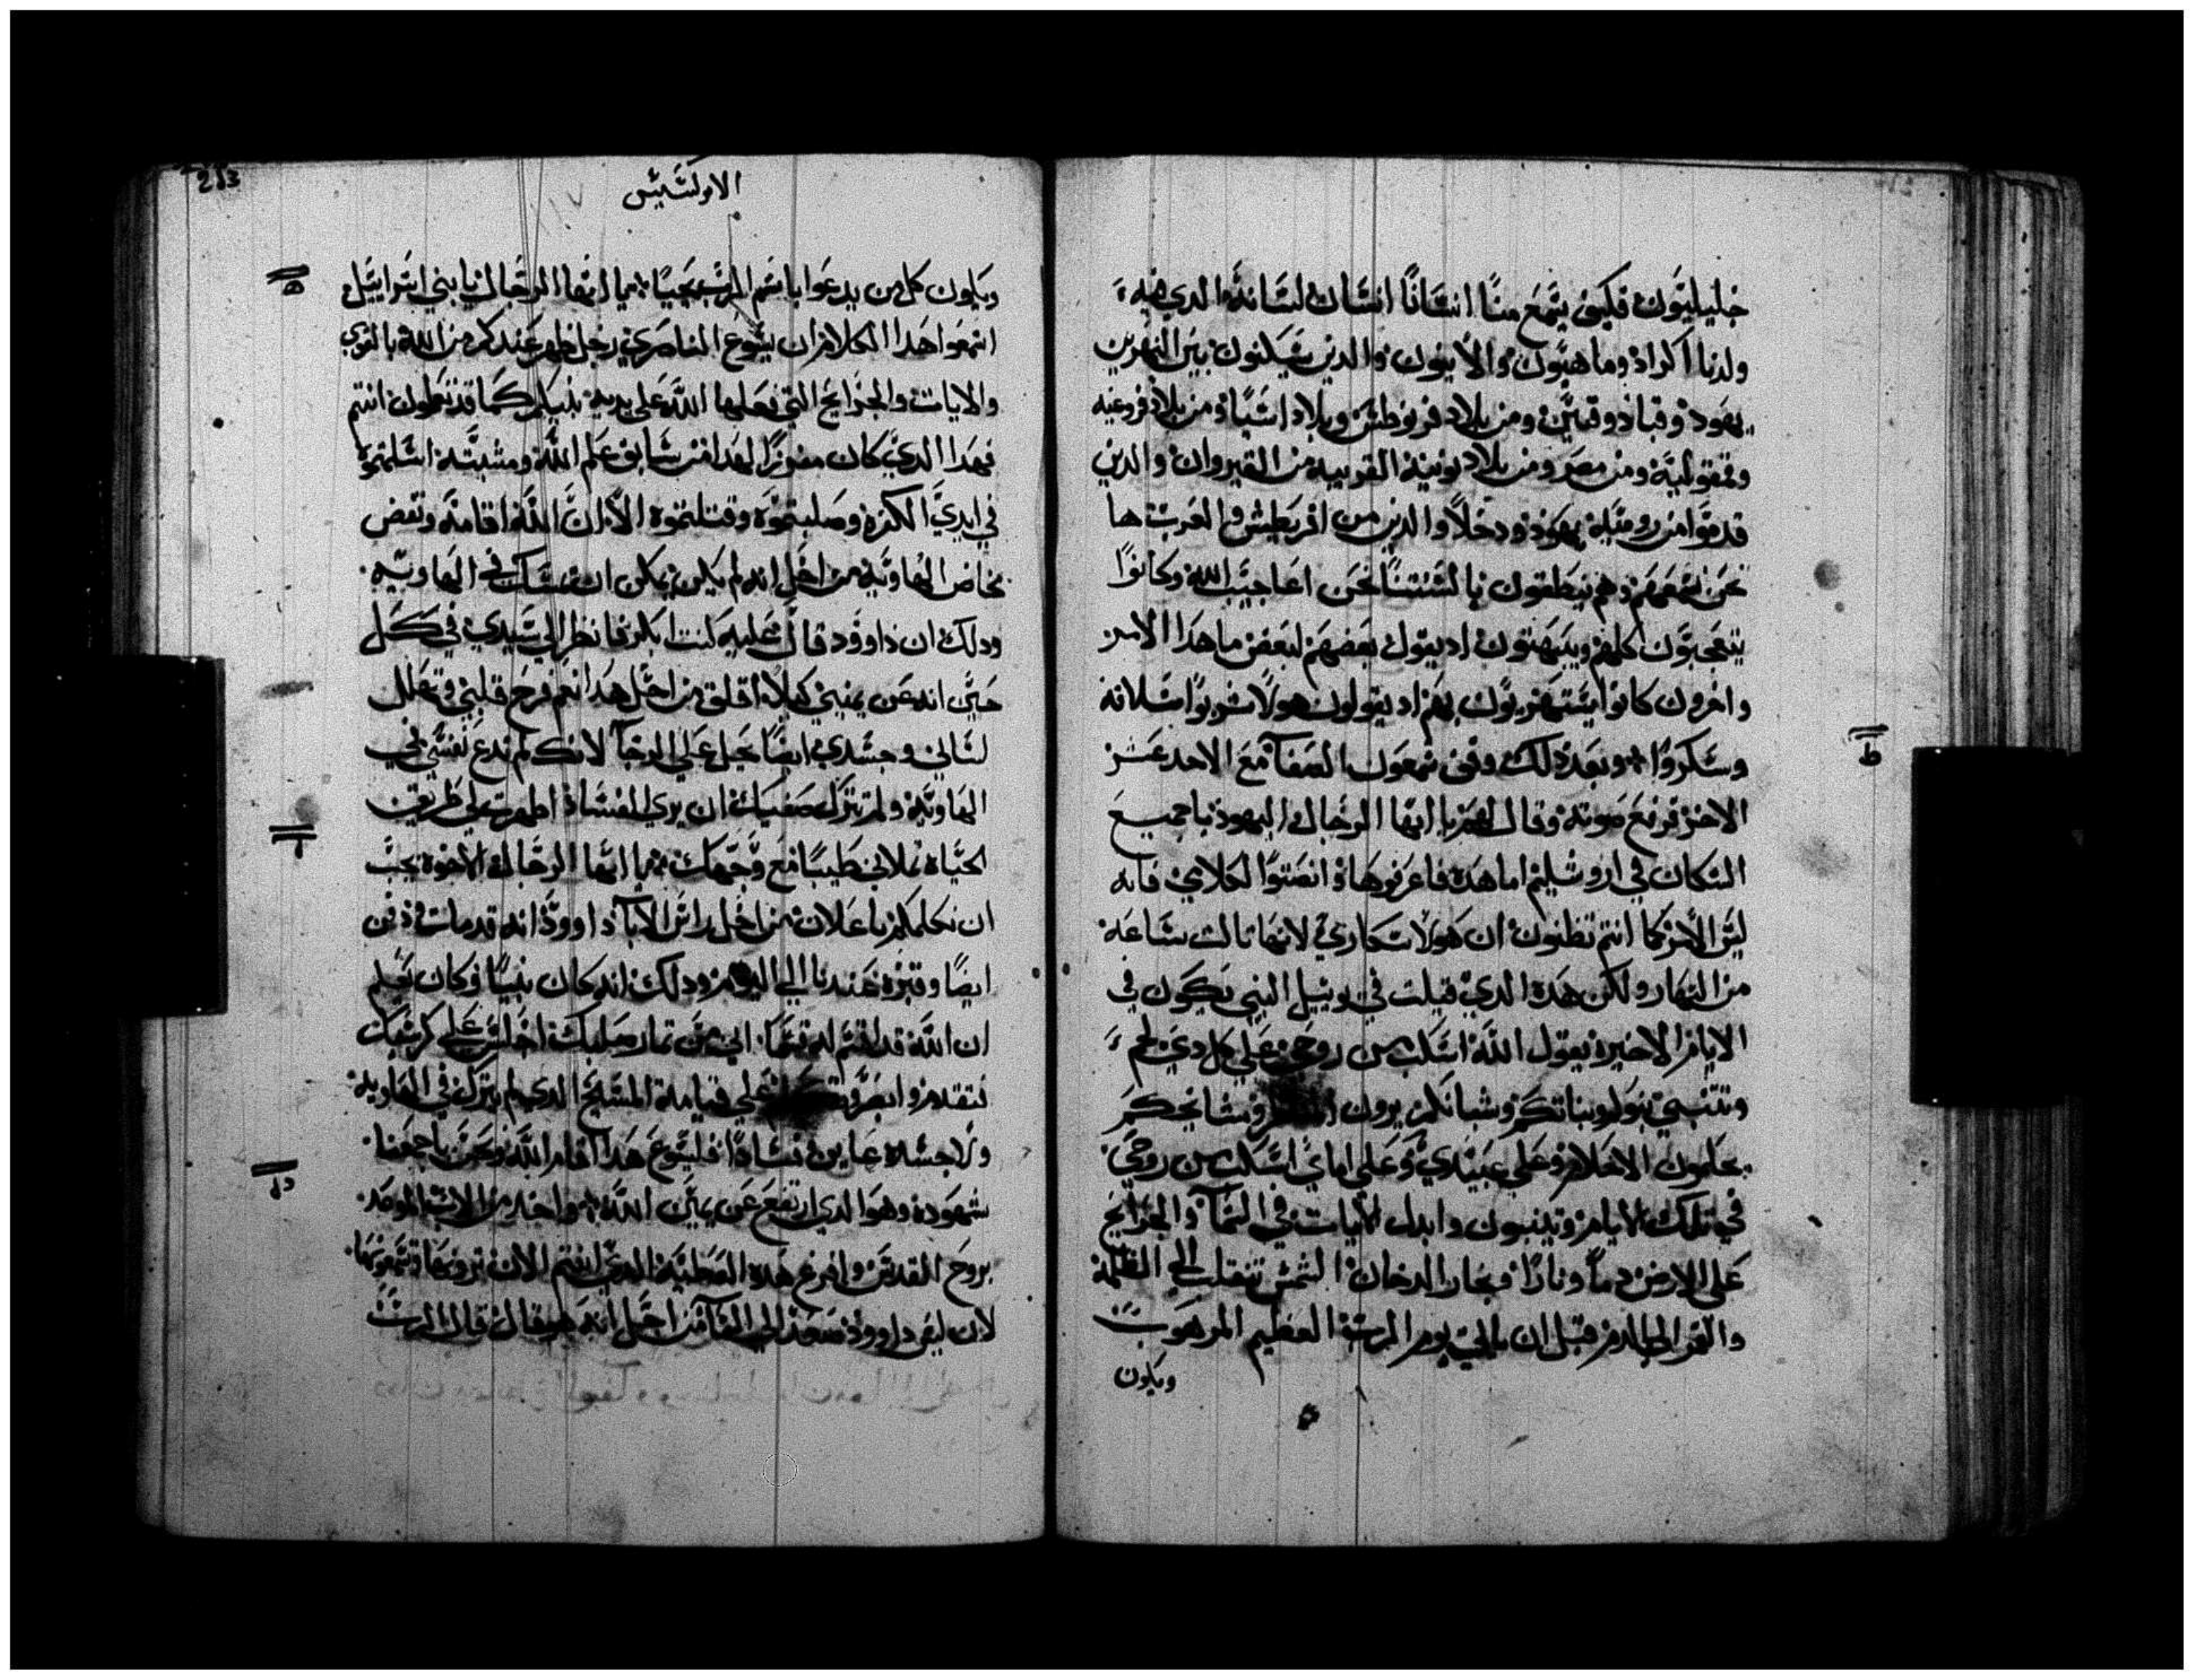 جليليون فكيف يسمع منا انسانًا انسان لسانه الدي فيه
ولدنا اكراد وماهيون والانيون والدين يسكنون بين النهرين
يهود وقباد وقيين ومن بلاد فرنوطس وبلاد اسيا ومن بلاد فروغيه
وفمفوليه ومن مصر ومن بلاد لونيه القريبه من القيروان والدين
قدموا من روميه يهود ودخلاً والدين من اقريطش والعرب ها
نحن نسمعهم وهم ينطقون بالسنتنا نحن اعاجيب الله وكانوا
يتعجبون كلهم ويبهتون اد يقول بعضهم لبعض ما هدا الامر
واخرون كانوا يستهزيون بهم اد يقولون هولا شربوا سلافه
وسكروا وبعد دلك وقف شمعون الصفا مع الاحد عشر
الاخر فرفع صوته وقال لهم يا ايها الرجال اليهود يا جميع
السكان في اروشليم اما هده فاعرفوها وانصتوا لكلامي فانه
ليس الامر كما انتم تظنون ان هولا سكاري لانها تالت ساعه
من النهار ولكن هده الدي قيلت في يوييل النبي يكون في
الايام الاخيره يقول الله اسكب من روحي علي كل دي لحم
وتتنبي بنوكم وبناتكم وشبانكم يرون ومشايخكم
يحلمون الاحلام وعلي عبيدي وعلي اماي اسكب من روحي
في تلك الايام ويتنبون وابدل الايات في السما والجرايح
علي الارض دماً ونارًا وبخار الدخان الشمس تنقلب الي الظلمه
والقمر الي الدم قبل ان ياتي يوم الرب العظيم المرهوب
ويكون
213
الابركسيس
ويكون كل من يدعوا باسم الرب يحيا يا ايها الرجال يا بني اسراييل
اسمعوا هدا الكلام ان يسوع الناصري رجل ظهر عندكم من الله بالقوي
والايات والجرايح التي فعلها الله علي يديه بينكم كما قد تعلمون انتم
فهدا الدي كان مفروزًا لهدا من سابق علم الله ومشيته اسلمتموه
في ايدي الكفره وصلبتموه وقتلتموه الا ان الله اقامه ونقض
مخاض الهاويه من اجل انه لم يكن يمكن ان يمسك في الهاويه
ودلك ان داوود قال عليه كنت ابكر فانظر الي سيدي في كل
حين انه عن يميني كيلا اقلق من اجل هدا نعم فرح قلبي وتهلل
لساني وجسدي ايضًا يحل علي الرجا لانك لم تدع نفسي في
الهاويه ولم تترك صفيك ان يري الفساد اظهرت لي طريق
الحياه تملاني طيبًا مع وجهك يا ايها الرجال الاخوه يجب
ان نكلمكم باعلان من اجل راس الابا داوود انه قد مات ودفن
ايضًا وقبره عندنا الي اليوم ودلك انه كان نبيًا وكان يعلم
ان الله قد اقسم له قسمًا اني من تمار صلبك اجلس علي كرسيك
فتقدم وابصر علي قيامة المسيح الدي لم يترك في الهاويه
ولا جسده عاين فسادًا فليسوع هدا اقام الله ونحن باجمعنا
شهوده وهو الدي ارتفع عن يمين الله واخد من الاب الموعد
بروح القدس وافرغ هده العطيه الدي انتم الان ترونها وتسمعونها
لان ليس داوود صعد الي السما من اجل انه هو قال قال الرب